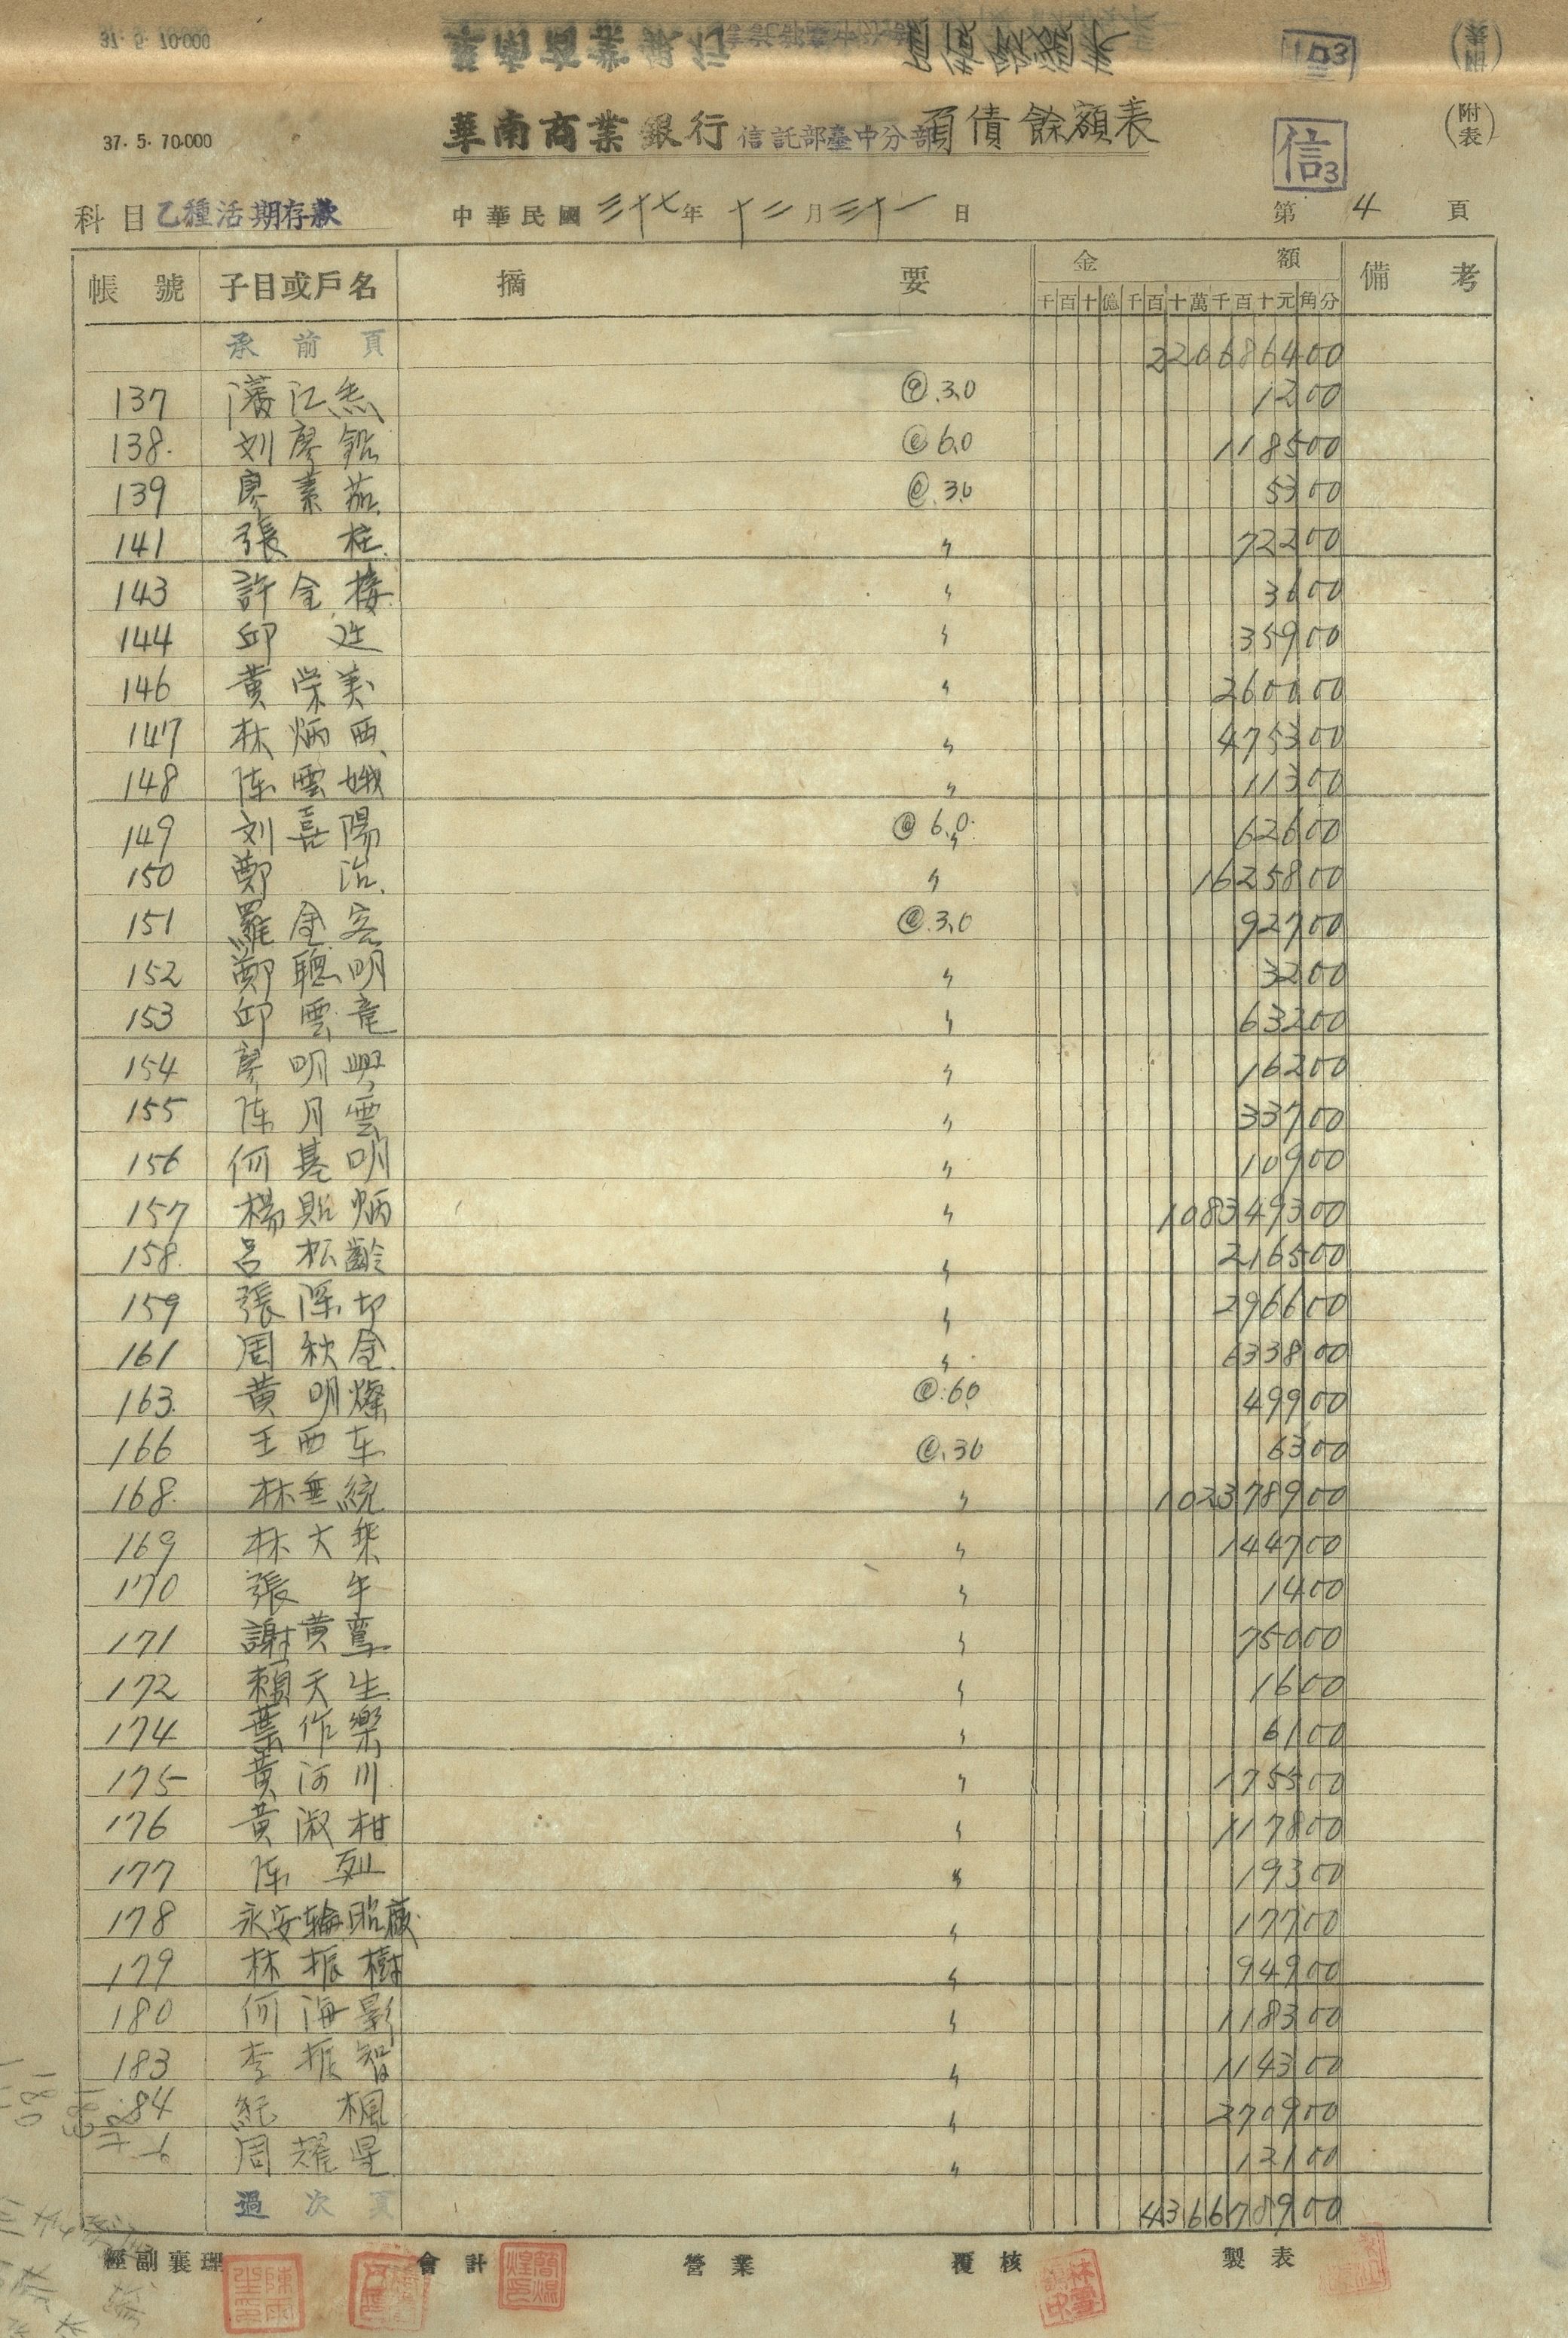 37. 5. 70.000
華南商業銀行 信託部臺中分部 負債餘額表
信3
(附表)
科目 乙種活期存款 中華民國 三十七 年 十二 月 三十一 日 第 4 頁
帳號 子目或戶名 摘要 金額 備考
千百十億千百十萬千百十元角分
承前頁 220686400
137 @ 3.0 1200
138. 刘廖 @ 6.0 118500
139 廖素茹 @ 3.0 5300
141 張桂 〃 72200
143 許金接 〃 3600
144 邱 〃 35900
146 黄栄美 〃 260000
147 林炳西 〃 475300
148 陈雲娥 〃 11300
149 刘喜陽 @ 6.0 〃 62600
150 鄭治 〃 1625800
151 羅金客 @ 3.0 92700
152 鄭聰明 〃 3200
153 邱雲竜 〃 63200
154 廖明興 〃 16200
155 陈月雲 〃 33700
156 何基明 〃 10900
157 楊貽炳 〃 108349300
158. 呂松齡 〃 216500
159 張陈 〃 296600
161 周秋金 〃 633800
163. 黄明燦 @ 6.0 49900
166 王西车 @ 30 6300
168. 林垂統 〃 102378900
169 林大 〃 144700
170 張午 〃 1400
171 謝黄鸞 〃 75000
172 賴天生 〃 1600
174 葉作樂 〃 6100
175 黄河川 〃 175500
176 黄淑柑 〃 117800
177 陈烈 〃 19300
178 永安輪胎廠 〃 17700
179 林振樹 〃 94900
180 何海影 〃 118300
183 李振智 〃 114300
84 紀楓 〃 270900
周耀星 〃 12100
過次頁 436678900
經副襄理 會計 營業 覆核 製表